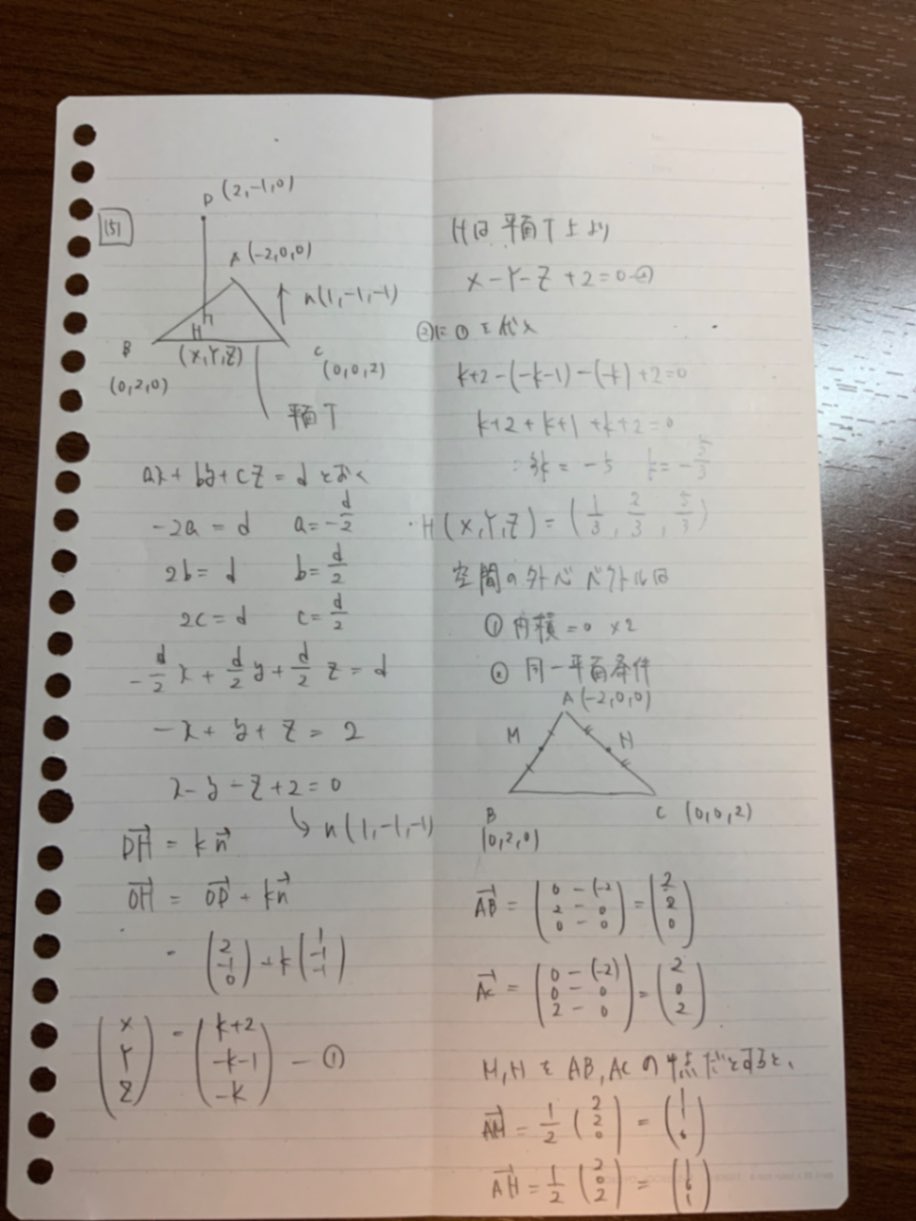 (5)
D (2,-1,0)
A (-2,0,0)
n(1,-1,-1)
H
(X,Y,Z)
B
(0,2,0)
C
(0,0,2)
平面T
ax + by + cz = d とおく
-2a = d a = -d/2
2b = d b = d/2
2c = d c = d/2
-d/2 x + d/2 y + d/2 z = d
-x + y + z = 2
x - y - z + 2 = 0
n(1,-1,-1)
DH = kn
OH = OD + kn
= (2 -1 0) + k(1 -1 -1)
(X Y Z) = (k+2 -k-1 -k) — ①
Hは平面T上より
X - Y - Z + 2 = 0 -②
②に①を代入
k+2-(-k-1)-(-k)+2=0
k+2+k+1+k+2=0
3k = -5 k = -5/3
H(X,Y,Z) = (1/3, 2/3, 5/3)
空間の外心ベクトルは
① 内積=0 ×2
② 同一平面条件
A(-2,0,0)
M
H
B
(0,2,0)
C (0,0,2)
AB = (0-(-2) 2-0 0-0) = (2 2 0)
AC = (0-(-2) 0-0 2-0) = (2 0 2)
M,HをAB,ACの中点だとすると、
AM = 1/2 (2 2 0) = (1 1 0)
AH = 1/2 (2 0 2) = (1 0 1)